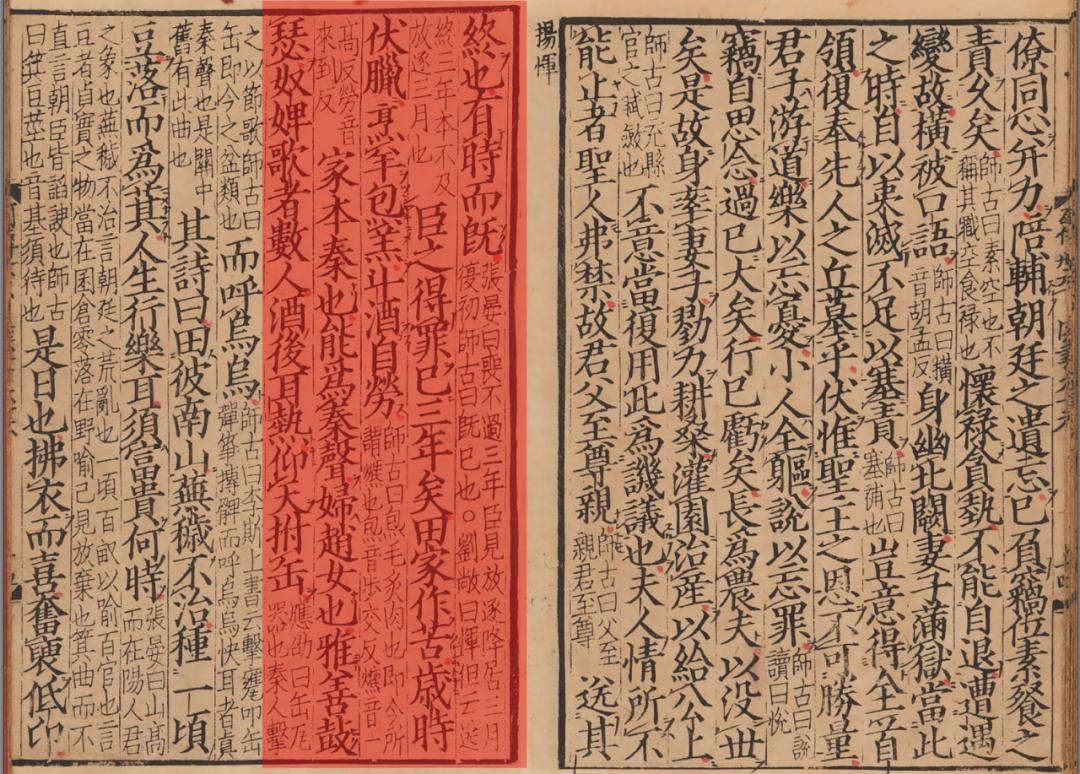 僚同心并力陪輔朝廷之遺忘已負竊位素餐之
責久矣師古曰素空也不稱其職空食祿也懷祿貪埶不能自退遭遇
變故橫被口語師古曰橫音胡孟反身幽北闕妻子滿獄當此
之時自以夷滅不足以塞責師古曰塞補也豈意得全首
領復奉先人之丘墓乎伏惟聖主之恩不可勝量
君子游道樂以忘憂小人全軀說以忘罪師古曰說讀曰悅
竊自思念過已大矣行已虧矣長爲農夫以没世
矣是故身率妻子勠力耕桑灌園治產以給公上
師古曰充縣官之賦斂也不意當復用此爲譏議也夫人情所不
能止者聖人弗禁故君父至尊親師古曰父至親君至尊送其
楊惲
終也有時而旣張晏曰喪不過三年臣見放逐降居三月復初師古曰旣已也○劉敞曰惲但云送
終三年本不及放逐三月也臣之得罪已三年矣田家作苦歲時
伏臘亨羊包羔斗酒自勞師古曰炰毛炙肉也即今所謂爊也炰音步交反爊音一
高反勞音來到反家本秦也能爲秦聲婦趙女也雅善鼓
瑟奴婢歌者數人酒後耳熱仰天拊缶應劭曰缶瓦器也秦人擊
之以節歌師古曰缶即今之盆類也而呼烏烏師古曰李斯上書云擊甕叩缶彈箏搏髀而呼烏烏快耳者眞
秦聲也是關中舊有此曲也其詩曰田彼南山蕪穢不治種一頃
豆落而爲萁人生行樂耳須富貴何時張晏曰山高而在陽人君
之象也蕪穢不治言朝廷之荒亂也一頃百畝以喻百官也言豆者貞實之物當在囷倉零落在野喻己見放棄也萁曲而不
直言朝臣皆諂諛也師古曰萁豆莖也音基須待也是日也拂衣而喜奮褎低卬